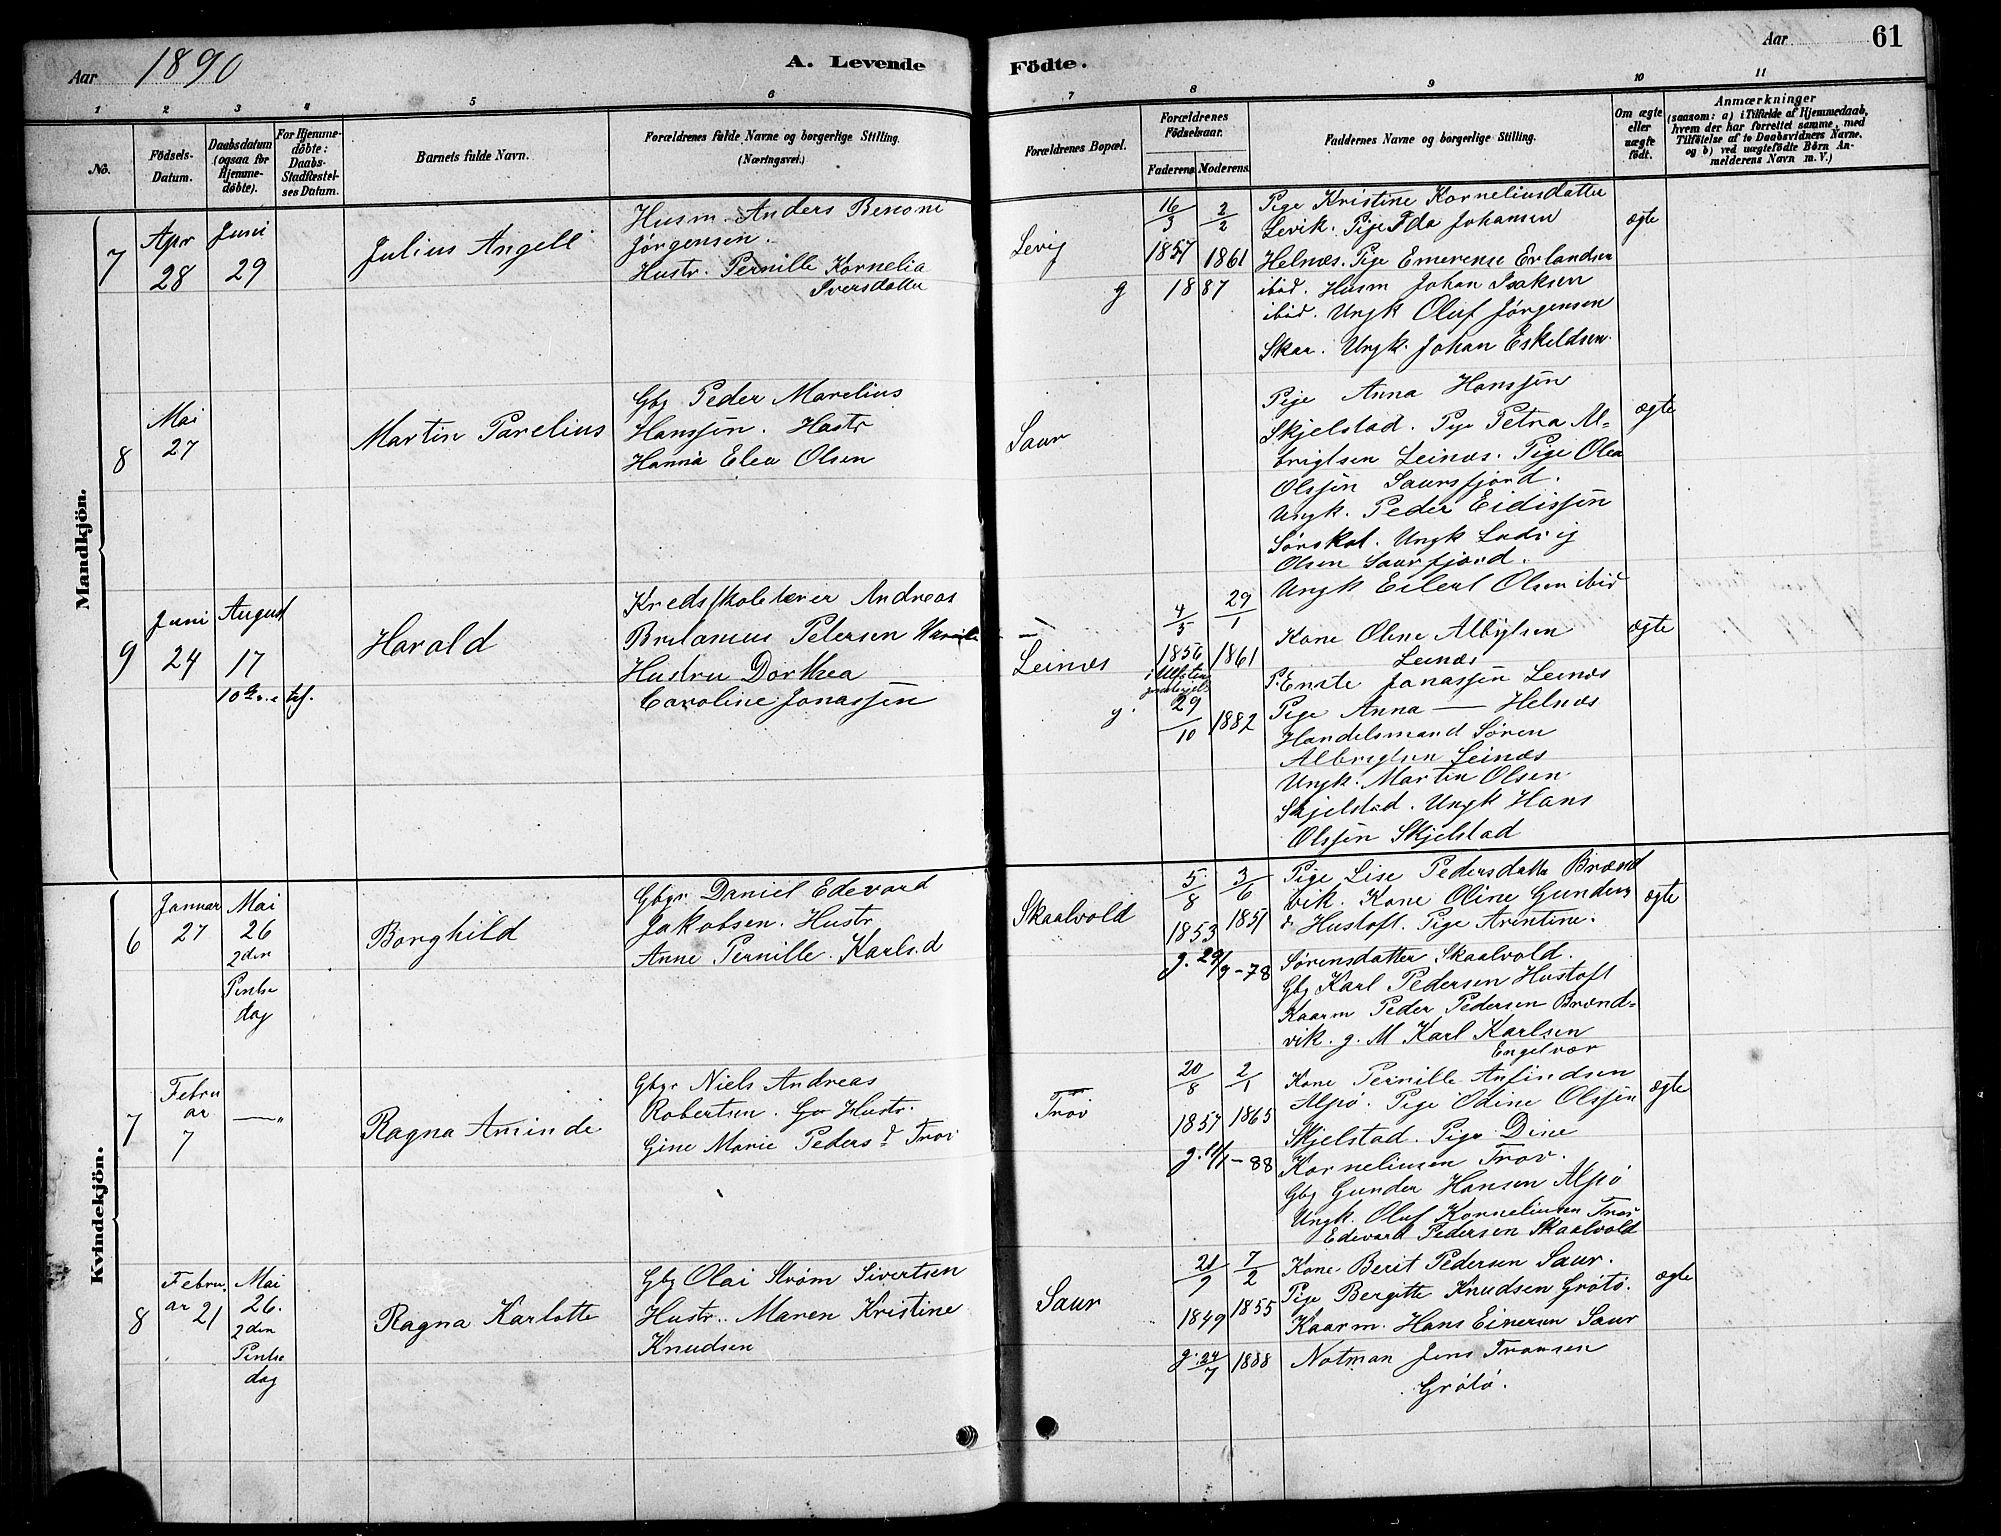 Aar 1890
A. Levende Födte.
Aar
61
1 2 3 4 5 6 7 8 9 10 11
No.
Födsels-
Datum.
Daabsdatum
(ogsaa for
Hjemme-
döbte).
For Hjemme-
döbte:
Daabs-
Stadfæstel-
ses Datum.
Barnets fulde Navn.
Forældrenes fulde Navne og borgerlige Stilling.
(Næringsvei.)
Forældrenes Bopæl.
Forældrenes
Födselsaar.
Faderens Moderens
Faddernes Navne og borgerlige Stilling.
Om ægte
eller
uægte
födt.
Anmærkninger
(saasom: a) i Tilfælde af Hjemmedaab,
hvem der har forrettet samme, med
Tilföielse af to Daabsvidners Navne.
og b) ved uægtefödte Börn An-
melderens Navn m. V.)
Mandkjön.
7
Apr
28
Juni
29
Julius Angell
Husm. Anders Benoni
Jørgensen.
Hustr. Pernille Kornelia
Iversdatter
Levig
g
16/3 2/2
1857 1861
1887
Pige Kristine Korneliusdatter
Levik. Pige Ida Johansen
Helnæs. Pige Emerense Erlandsen
ibid. Husm Johan Isaksen
ibid. Ungk Oluf Jørgensen
Skar. Ungk. Johan Eskeldsen.
ægte
8
Mai
27
Martin Parelius
Gbg Peder Marelius
Hanssen. Hustr
Hanna Elea Olsen
Saur
Pige Anna Hanssen
Skjelstad. Pige Petra Al-
brigtsen Leinæs. Pige Olea
Olssen Saursfjord.
Ungk. Peder Eidissen
Sørskot. Ungk Ludvig
Olsen Saurfjord.
Ungk Eilert Olsen ibid
ægte
9
Juni
24
August
17
Harald
Kredsskolelærer Andreas
Petersen
Hustru Dorthea
Caroline Jonassen
Leinæs
g.
4/5 29/1
1856 1861
29/10 1882
Kone Oline Albrigtsen
Leinæs
P. Enste Jonassen Leinæs
Pige Anna — Helnæs
Handelsmand Søren
Albrigtsen Leinæs
Ungk. Martin Olsen
Skjelstad. Ungk Hans
Olssen Skjelstad
ægte
Kvindekjön.
6
Januar
27
Mai
26
2den
Pintse
dag
Borghild
Gbgr. Daniel Edevard
Jakobsen. Hustr
Anne Pernille Karls.d
Skaalvold
5/8 3/6
1853 1857
g. 29/9-78
Pige Lise Pedersdatter Brænd
vik. Kone Oline Gunders
d. Hustoft. Pige Arentine.
Sørensdatter Skaalvold.
Gbg Karl Pedersen Hustoft
Kaarm Peder Pedersen Brænd-
vik. g. M Karl Karlsen
Engelvær
ægte
7
Febru
ar
7
—"
Ragna Aminde
Gbgr Niels Andreas
Robertsen. Hustr.
Gine Marie Peders d Trov
Trov
20/8 2/1
1857 1865
g. 11/1-88
Kone Pernille Anfindsen
Alpø. Pige Odine Olssen
Skjelstad. Pige Dine
Korneliusen Trov.
Gbg Gunder Hansen Alpø
Ungk. Oluf Korneliusen Trov
Edevard Pedersen Skaalvold
ægte
8
Febru
ar 21
Mai
26.
2den
Pintse
dag
Ragna Karlotte
Gbg Olai Strøm Sivertsen
Hustr. Maren Kristine
Knudsen
Saur
21/9 7/2
1849 1855
g. 24/7 1888
Kone Berit Pedersen Saur.
Pige Bergitte Knudsen Grøtø.
Kaarm. Hans Einersen Saur
Notman Jens Transen
Grøtø.
ægte